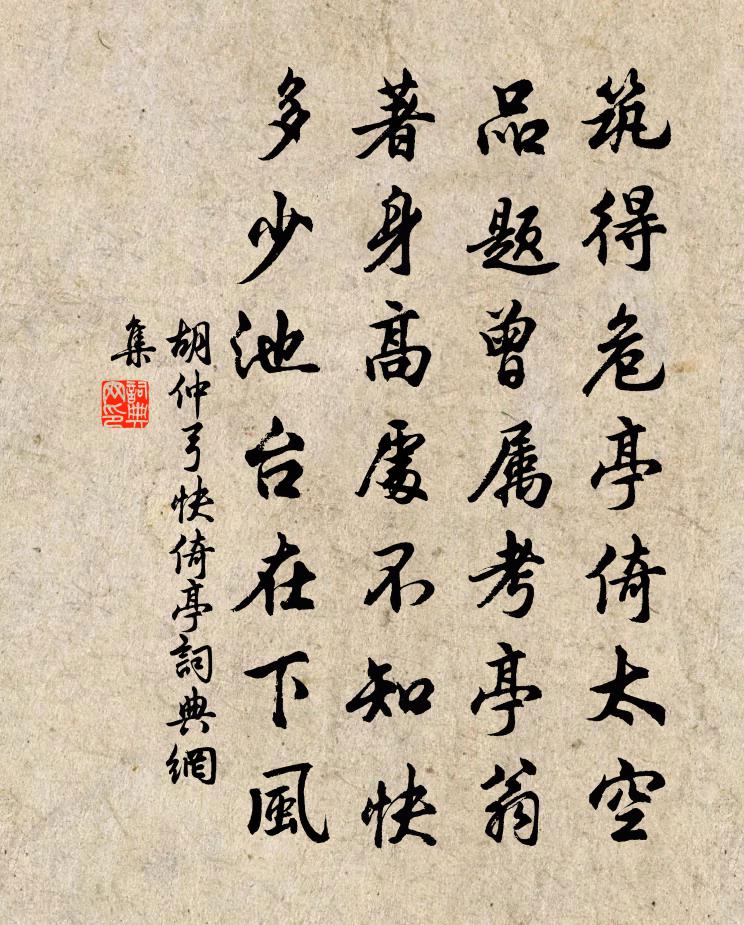 筑得危亭倚太空
品题曾属考亭翁
著身高處不知快
多少池台在下風
胡仲弓快倚亭詞典網
集
詞典
网印